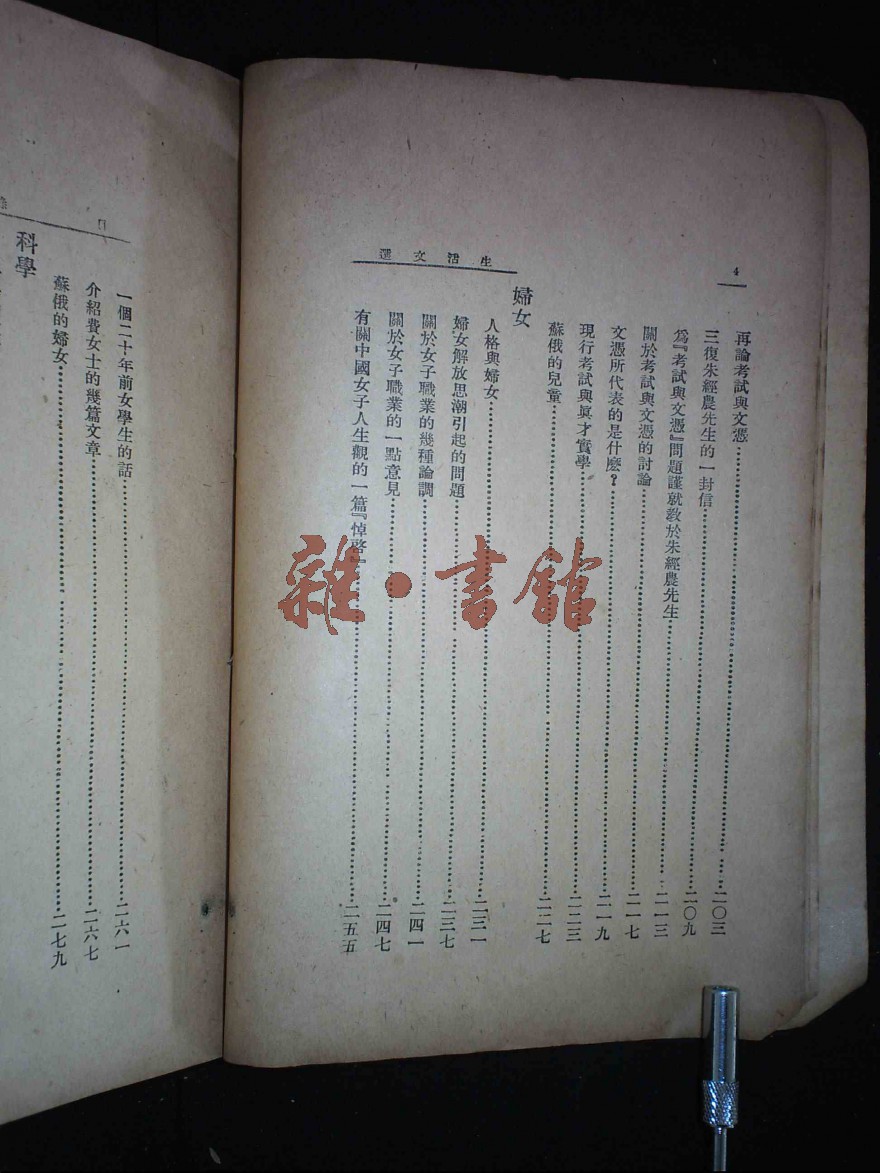 4
生活文選
再論考試與文憑……二〇三
三復朱經農先生的一封信……二〇九
爲『考試與文憑』問題謹就敎於朱經農先生……二一三
關於考試與文憑的討論……二一七
文憑所代表的是什麽?……二一九
現行考試與眞才實學……二二三
蘇俄的兒童……二二七
婦女
人格與婦女……二三一
婦女解放思潮引起的問題……二三七
關於女子職業的幾種論調……二四一
關於女子職業的一點意見……二四七
有關中國女子人生觀的一篇『悼啓』……二五五
目
一個二十年前女學生的話……二六一
介紹費女士的幾篇文章……二六七
蘇俄的婦女……二七九
科學
雜·書館